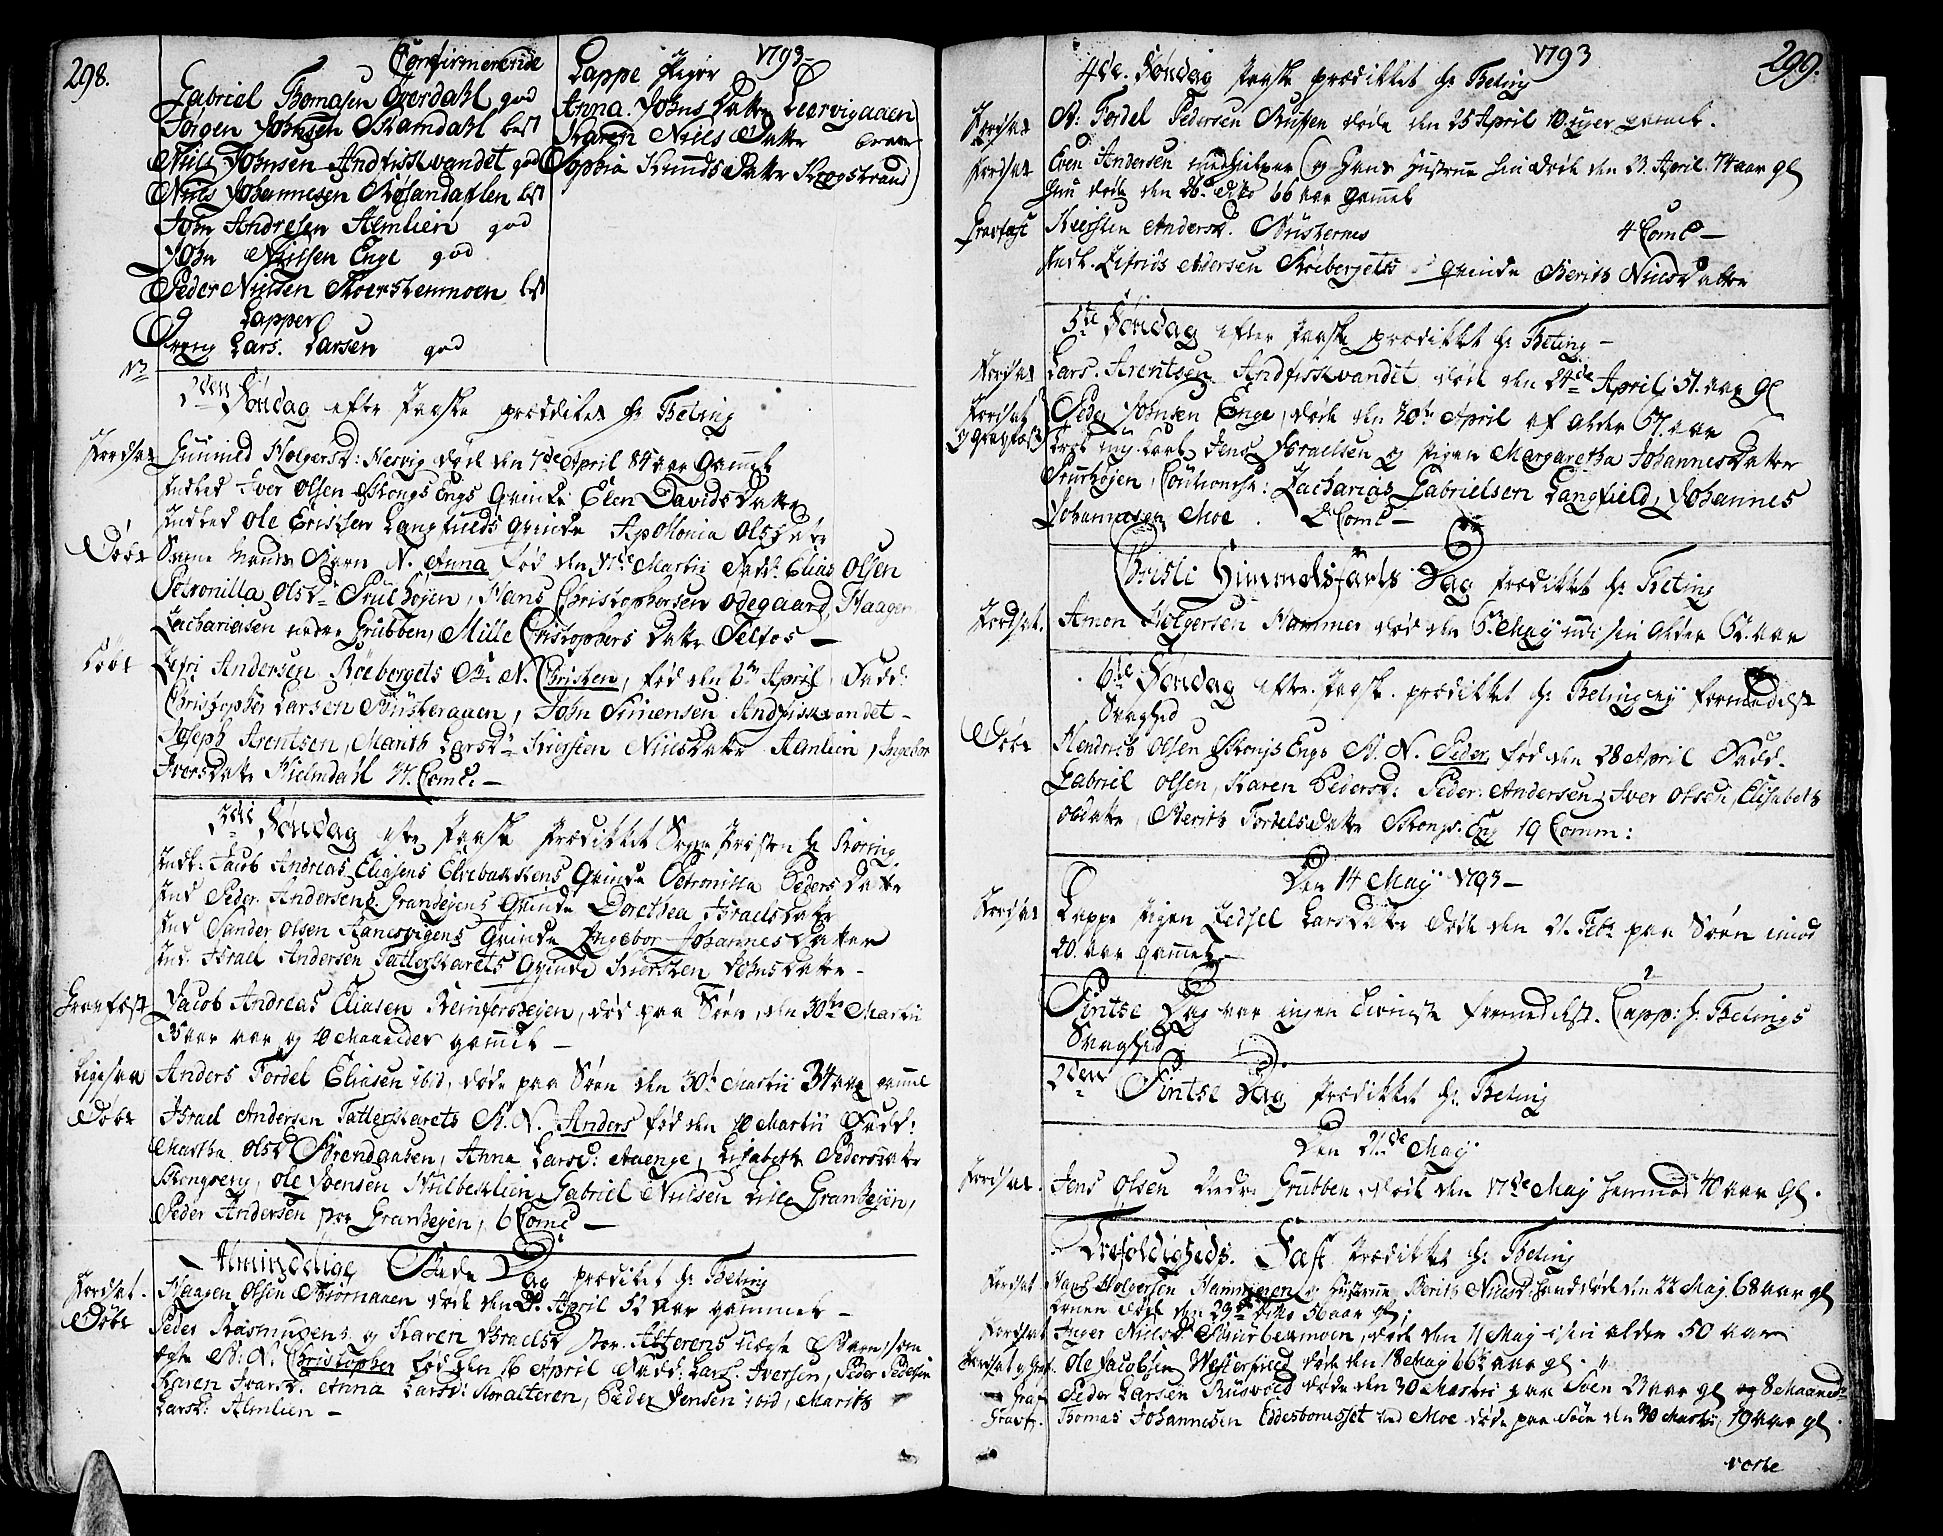 298.
Confirmerede
Gabriel Thomasen Overdahl god
Jørgen Johnsen Skamdahl best
Niels Johnsen Andfiskvandet god
Niels Johannesen Røsandaflen best
John Andresen Almlien god
John Nielsen Enge god
Peder Nielsen Skoerstenmoen best
Lapper
Dreng Lars Larsen god
1793
Lappe Piger
Anna Johns Datter Leervigaaen
Karen Niels Datter
Sophia Knuds Datter Kragstrand
2den Søndag efter Paaske prædiket Hr Heting
Jordsat Gunnild Holgersd: Nervig døde den 7de April 84 aar gammel
Indled Iver Olsen Storgs Engs Qvinde Elen Davids Datter
Indled Ole Ericksen Langfields Qvinde Apollonia Olsdatter
Døbt Samme Mands Barn N. Anna fød den 17de Martii Fadd: Elias Olsen
Petronilla Olsdr Sruthøjen, Hans Christophersen Ødegaard, Haagen
Zachariasen nedre Grubben, Mille Christophers Datter Selfos
Døbt Andersen Røebergets B. N. Christen, fød den 6te April Fadd:
Christopher Larsen Biusteraaen, John Simensen Andfiskvandet
Joseph Arentsen, Marith Larsdr Kiersten Nielsdatter Almlien, Ingebor
Iversdatter Hielmdahl 37 Comd:
3die Søndag efter Paaske Prædikket Sogne Præsten Hr Röring
Indl: Jacob Andreas Eliasens Elvebakkens Qvinde Petronilla Peders Datter
Ind Peder Andersens Granhejens Qvinde Dorethea Israels Datter
Ind Sander Olsen Ranesvigens Qvinde Ingebor Johannes Datter
Ind. Israel Andersen Tatlerskarets Qvinde Kiersten Johns Datter
Gravfæst Jacob Andreas Eliasen Reinforshejen, død paa Søen, den 30te Martii
35 aar og 10 Maaneder gammel
Ligesaa Anders Tordel Eliasen ibid, døde paa Søen den 30te Martii 34 aar gammel
Døbt Israel Andersen Tatlerskarets B. N. Anders fød den 10 Martii Fadd:
Martha Olsd Strandgaasen, Anna Larsd: Aaenge, Lisabeth Peders datter
Stengberg, Ole Svensen Hvilbeklien, Gabriel Nielsen Lille Granhejen,
Peder Andersen stor Granhejen, 6 Comd
Almindelige Bede Dag prædiket Hr Heting
Jordsat. Haagen Olsen Biørnaaen døde den April 52 aar gammel
Døbt Peder Rasmusens og Karen Israelsd stor Alterens Uægte Barn, som
B: N. Christopher fød den 16 April Fadd: Lars Iversen, Peder Pedersen
Karen Ivarsd: Anna Larsd: Storalteren, Peder Jensen ibid, Marith
Larsd: Almlien
1793
299.
4de Søndag Paaske prædikket Hr Heting
Jordsat B: Tordel Pedersen Russen døde den 25 April 10 uger gammel.
Jordsat Even Andersen og Hans Hustrue døde den 23 April 74 aar gl
Hun døde den 26 dito 66 aar gammel
Gravfæst Kiersten Andersd. Biusternes 4 Comd
Indl. Andersen Røebergets qvinde Berith Niels Datter
5te Søndag efter Paaske prædikket Hr Heting
Jordsat Lars Arentsen Andfiskvandet døde den 24de April 51 aar gl
Jordsat og Gravfæst Peder Johnsen Enge, døde den 30te April af alder 57 aar
Karl Jens Israelsen og Pigen Margaretha Johannes Datter
Sruthøjen, Cautionist: Zacharias Gabrielsen Langfield, Johannes
Johannesen Moe. 2 Comd
Christi Himmelsfarts Dag Prædikket Hr Heting
Jordsat. Amon Holgersen Hammer død den 6 May udi sin alder 62 aar
6te Søndag efter Paask. prædikket Hr Heting ej formedelst
Svaghed
Døbt Hendrich Olsen Storgs Engs B. N. Peder, fød den 28 April Fadd.
Gabriel Olsen, Karen Pedersd: Peder Andersen, Iver Olsen, Elisabeth
Olsdatter, Berith Tordelsdatter Storgs Eng 19 Comm:
Den 14 May 1793
Jordsat Lappe Pigen Zedsel Larsdatter døde den 21 Feb: paa Søen imod
20 aar gammel
Pintse Dag var ingen tieniste formedelst Capp: Hr Hetings
Svaghed
2den Pintse Dag Prædikket Hr. Heting
Den 21de May
Jordsat. Jens Olsen Nedre Grubben, døde den 17de May henimod 40 aar gl.
Trefoldigheds Fæst Prædikket Hr Heting
Jordsat Hans Holgersen Hammeren og Hustrue, Berith Nielsd hand døde den 22 Maj 68 aar gl
Konen døde den 29de dito 56 aar gl,
Jordsat Inger Nielsd Skoerstenmoen, døde den 11 Maj i sin alder 50 aar
Jordsat og Graf. Ole Jacobsen Westerfield døde den 18 Maj 66 1/2 aar gl.
Graf Peder Larsen Rusvold døde den 30 Martii paa Søen 23 aar gl og 8 Maaned
Gravf. Thomas Johannesen Eddesborusset ved Moe døde paa Søen den 30 Martii, 19 aar gl.